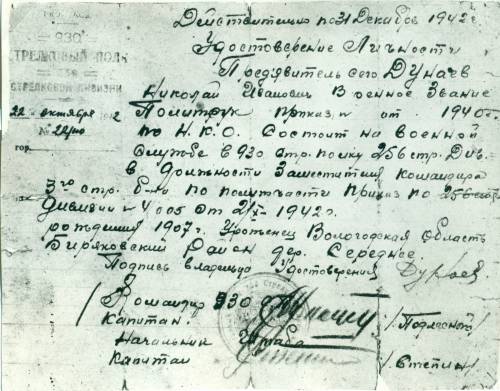 930
СТРЕЛКОВЫЙ ПОЛК
256
СТРЕЛКОВОЙ ДИВИЗИИ
22 октября 1942
№
гор.
Действительно по 31 Декабря 1942 г.
Удостоверение Личности
Предявитель сего Дунаев
Николай Иванович Военное Звание
Политрук приказ № от 1940 г.
по Н.К.О. Состоит на военной
службе в 930 стр. полку 256 стр. Див.
в должности Заместителя Командира
3го стр. б-на по политчасти приказ по 256 стр.
Дивизии № 4005 от 2/X - 1942 г.
рождения 1907 г. Уроженец Вологодская область
Биряковский Район дер. Середнее.
Подпись владельца Удостоверения Дунаев
/ Командир 930
Капитан.
Начальник Штаба
Капитан / Степин /